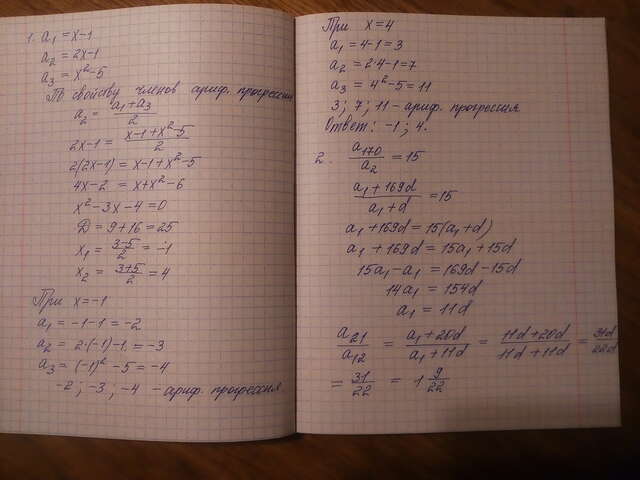 1. a₁ = x-1
a₂ = 2x-1
a₃ = x²-5
По свойству членов ариф. прогрессии
a₂ = (a₁+a₃)/2
2x-1 = (x-1+x²-5)/2
2(2x-1) = x-1+x²-5
4x-2 = x+x²-6
x²-3x-4=0
D=9+16=25
x₁ = (3-5)/2 = -1
x₂ = (3+5)/2 = 4
При x=-1
a₁ = -1-1 = -2
a₂ = 2·(-1)-1 = -3
a₃ = (-1)²-5 = -4
-2; -3; -4 - ариф. прогрессия
При x=4
a₁ = 4-1 = 3
a₂ = 2·4-1=7
a₃ = 4²-5=11
3; 7; 11 - ариф. прогрессия
Ответ: -1; 4.
2. a₁₇₀/a₂ = 15
(a₁+169d)/(a₁+d) = 15
a₁+169d = 15(a₁+d)
a₁+169d = 15a₁+15d
15a₁-a₁ = 169d-15d
14a₁ = 154d
a₁ = 11d
a₂₁/a₁₂ = (a₁+20d)/(a₁+11d) = (11d+20d)/(11d+11d) = 31d/22d
= 31/22 = 1 9/22